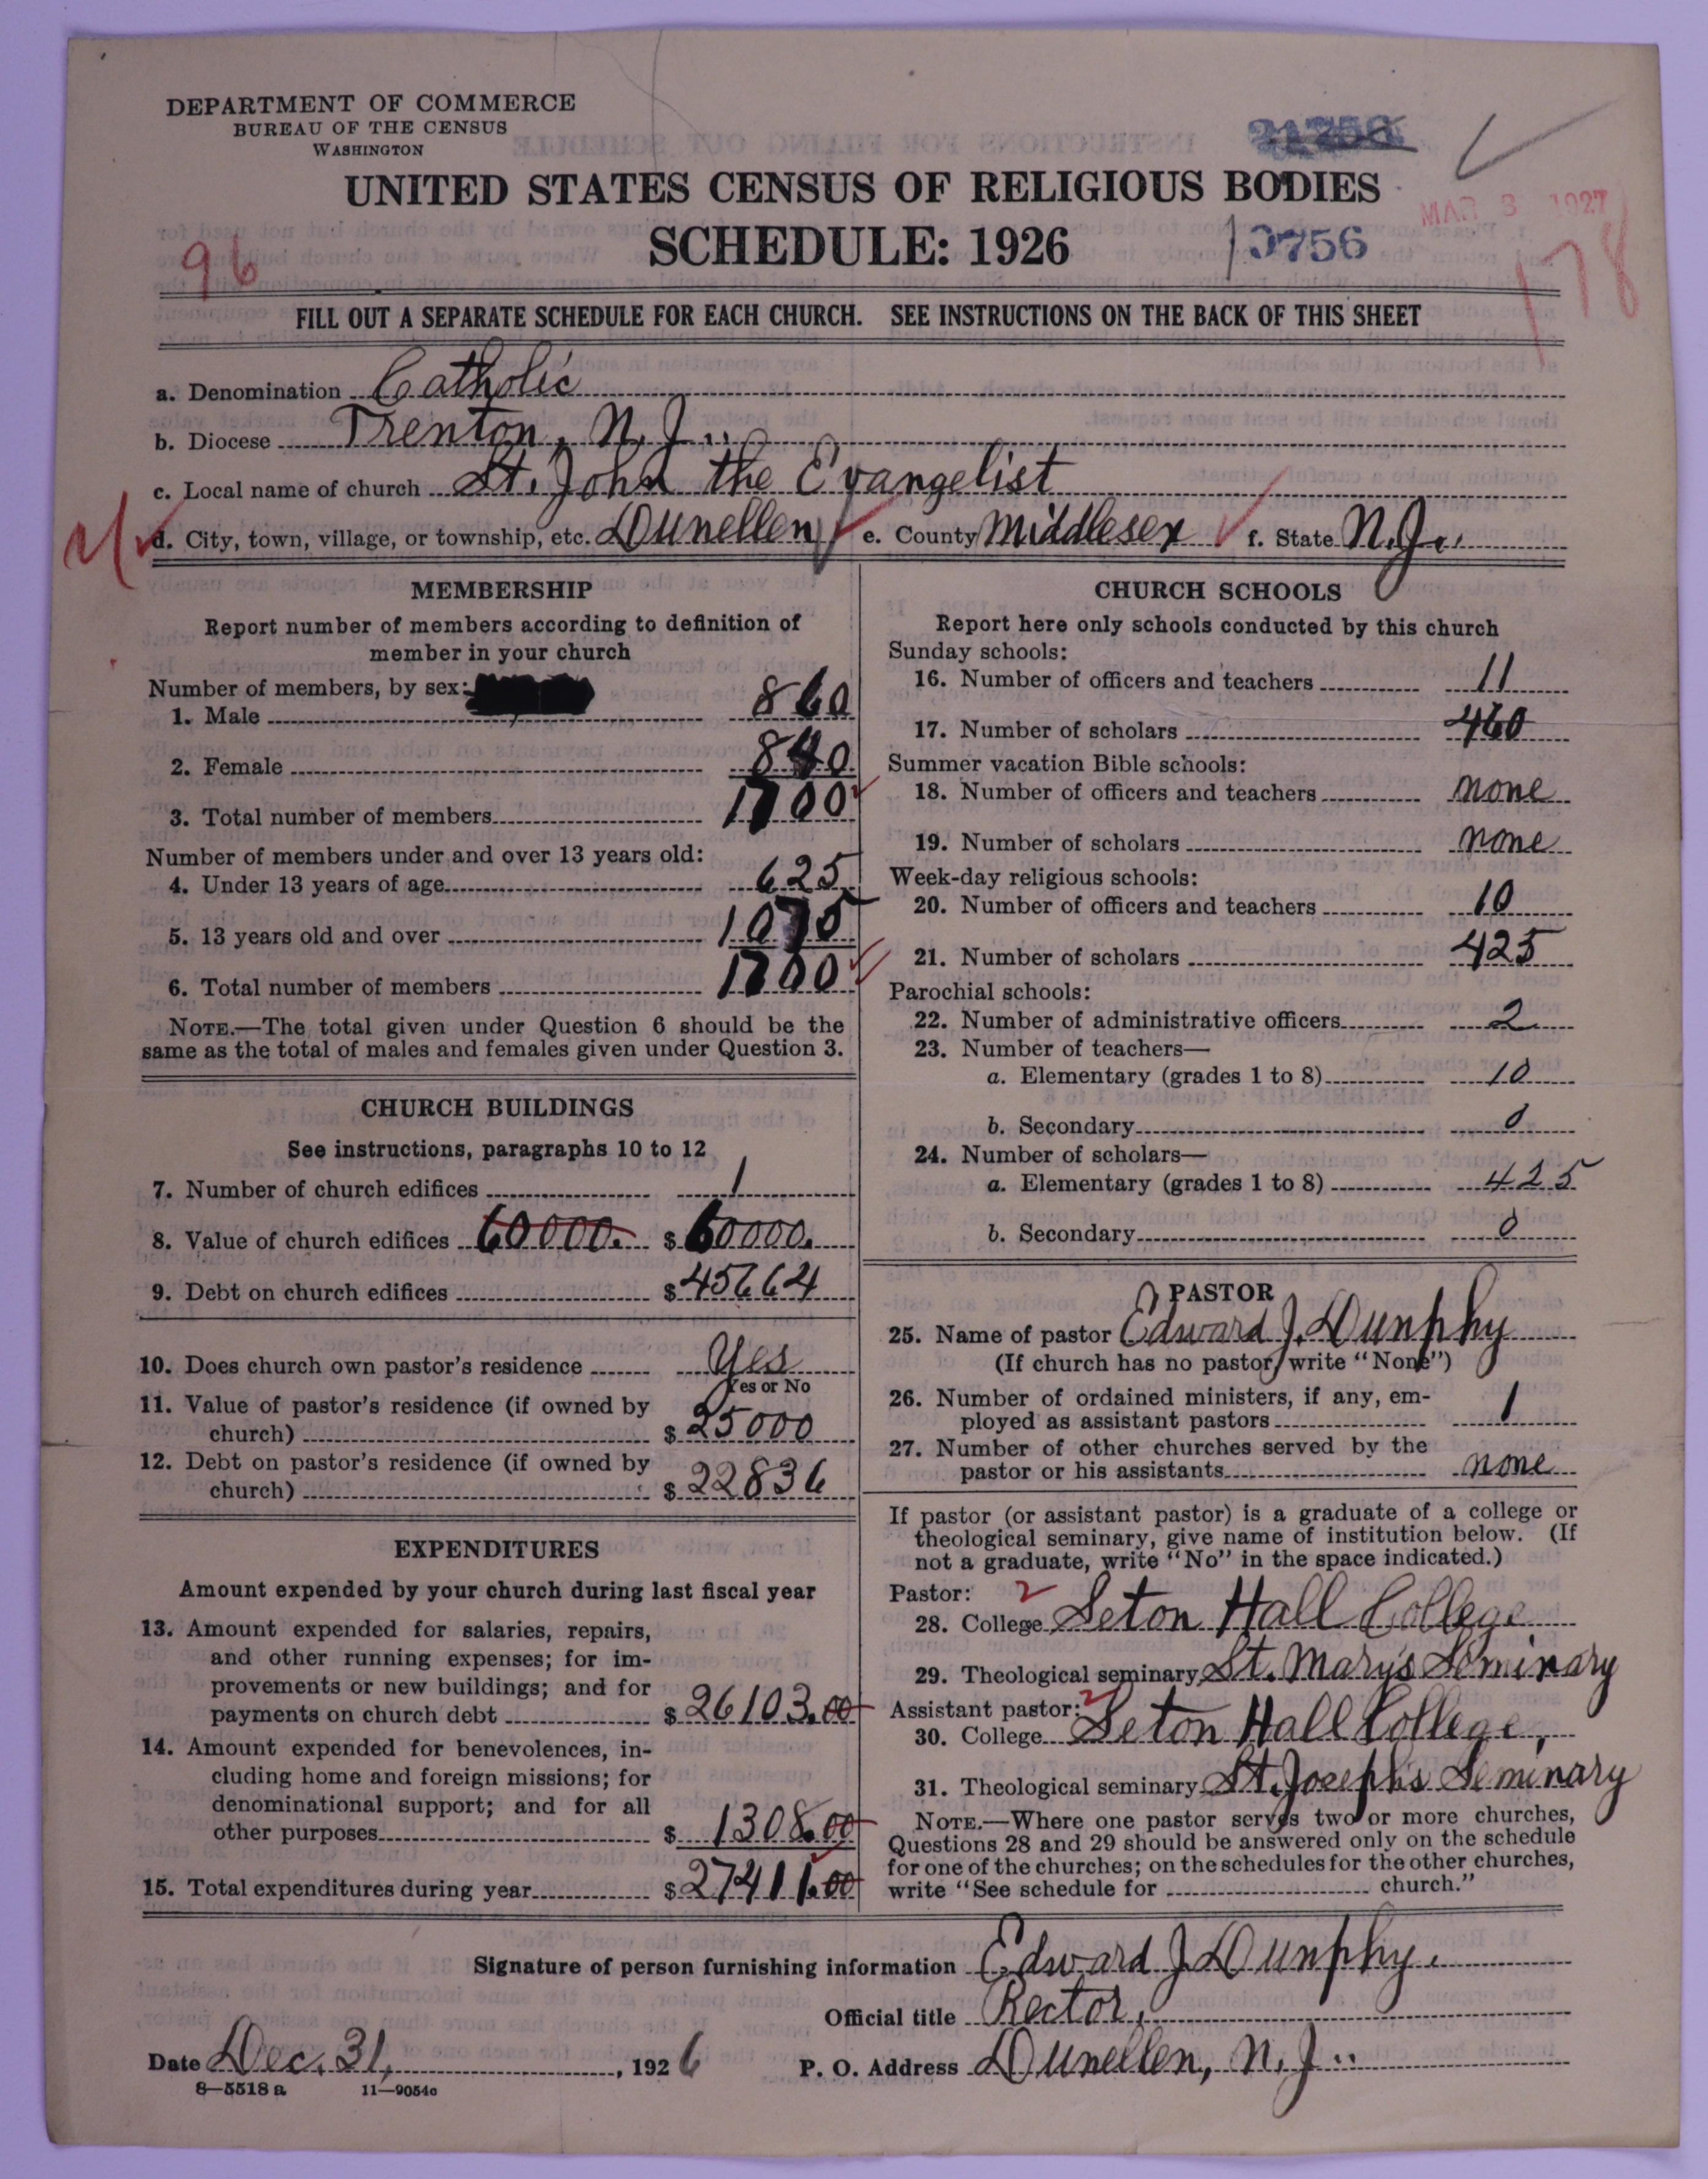 DEPARTMENT OF COMMERCE
BUREAU OF THE CENSUS
WASHINGTON
UNITED STATES CENSUS OF RELIGIOUS BODIES
MAR 3 1927
SCHEDULE: 1926
96
178
FILL OUT A SEPARATE SCHEDULE FOR EACH CHURCH. SEE INSTRUCTIONS ON THE BACK OF THIS SHEET
a. Denomination Catholic
b. Diocese Trenton, N. J.
c. Local name of church St. John the Evangelist
d. City, town, village, or township, etc. Dunellen e. County Middlesex f. State N.J.
MEMBERSHIP
Report number of members according to definition of
member in your church
Number of members, by sex:
1. Male 860
2. Female 840
3. Total number of members 1700
Number of members under and over 13 years old:
4. Under 13 years of age 625
5. 13 years old and over 1075
6. Total number of members 1700
NOTE.—The total given under Question 6 should be the
same as the total of males and females given under Question 3.
CHURCH BUILDINGS
See instructions, paragraphs 10 to 12
7. Number of church edifices 1
8. Value of church edifices 60000. $ 60000.
9. Debt on church edifices $ 45664
10. Does church own pastor's residence Yes
Yes or No
11. Value of pastor's residence (if owned by
church) $ 25000
12. Debt on pastor's residence (if owned by
church) $ 22836
EXPENDITURES
Amount expended by your church during last fiscal year
13. Amount expended for salaries, repairs,
and other running expenses; for im-
provements or new buildings; and for
payments on church debt $ 26103.00
14. Amount expended for benevolences, in-
cluding home and foreign missions; for
denominational support; and for all
other purposes $ 1308.00
15. Total expenditures during year $ 27411.00
CHURCH SCHOOLS
Report here only schools conducted by this church
Sunday schools:
16. Number of officers and teachers 11
17. Number of scholars 460
Summer vacation Bible schools:
18. Number of officers and teachers none
19. Number of scholars none
Week-day religious schools:
20. Number of officers and teachers 10
21. Number of scholars 425
Parochial schools:
22. Number of administrative officers 2
23. Number of teachers—
a. Elementary (grades 1 to 8) 10
b. Secondary 0
24. Number of scholars—
a. Elementary (grades 1 to 8) 425
b. Secondary 0
PASTOR
25. Name of pastor Edward J. Dunphy
(If church has no pastor, write "None")
26. Number of ordained ministers, if any, em-
ployed as assistant pastors 1
27. Number of other churches served by the
pastor or his assistants none
If pastor (or assistant pastor) is a graduate of a college or
theological seminary, give name of institution below. (If
not a graduate, write "No" in the space indicated.)
Pastor: 2
28. College Seton Hall College
29. Theological seminary St. Mary's Seminary
Assistant pastor: 2
30. College Seton Hall College,
31. Theological seminary St. Joseph's Seminary
NOTE.—Where one pastor serves two or more churches,
Questions 28 and 29 should be answered only on the schedule
for one of the churches; on the schedules for the other churches,
write "See schedule for church."
Signature of person furnishing information Edward J. Dunphy.
Official title Rector,
Date Dec. 31, 1926 P. O. Address Dunellen, N. J.
8—5518 a 11—9054c